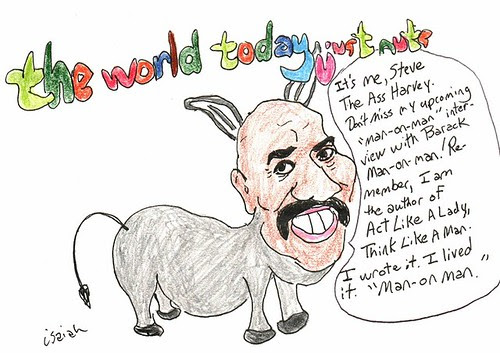 the world today just nuts
It's me, Steve
The Ass Harvey.
Don't miss my upcoming
"man-on-man" inter-
view with Barack
Man-on-man! Re-
member, I am
the author of
Act Like A Lady,
Think Like A Man.
I wrote it. I lived
it. "Man-on Man."
isaiah